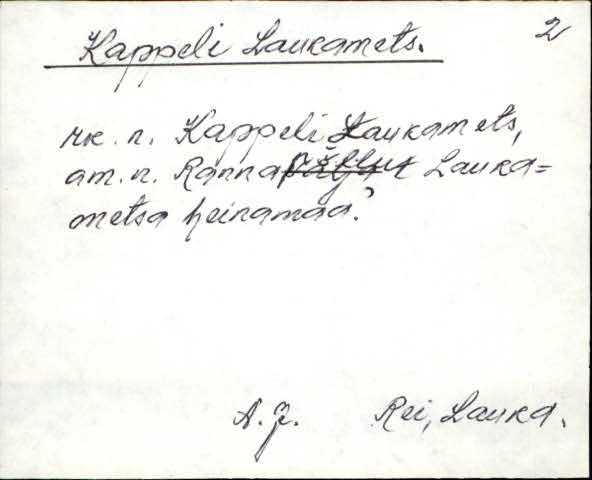 Kappeli Laukamets. 2
rk. n. Kappeli Laukamets,
am. n. Ranna Lauka=
metsa heinamaa?
A. J. Rei, Lauka.